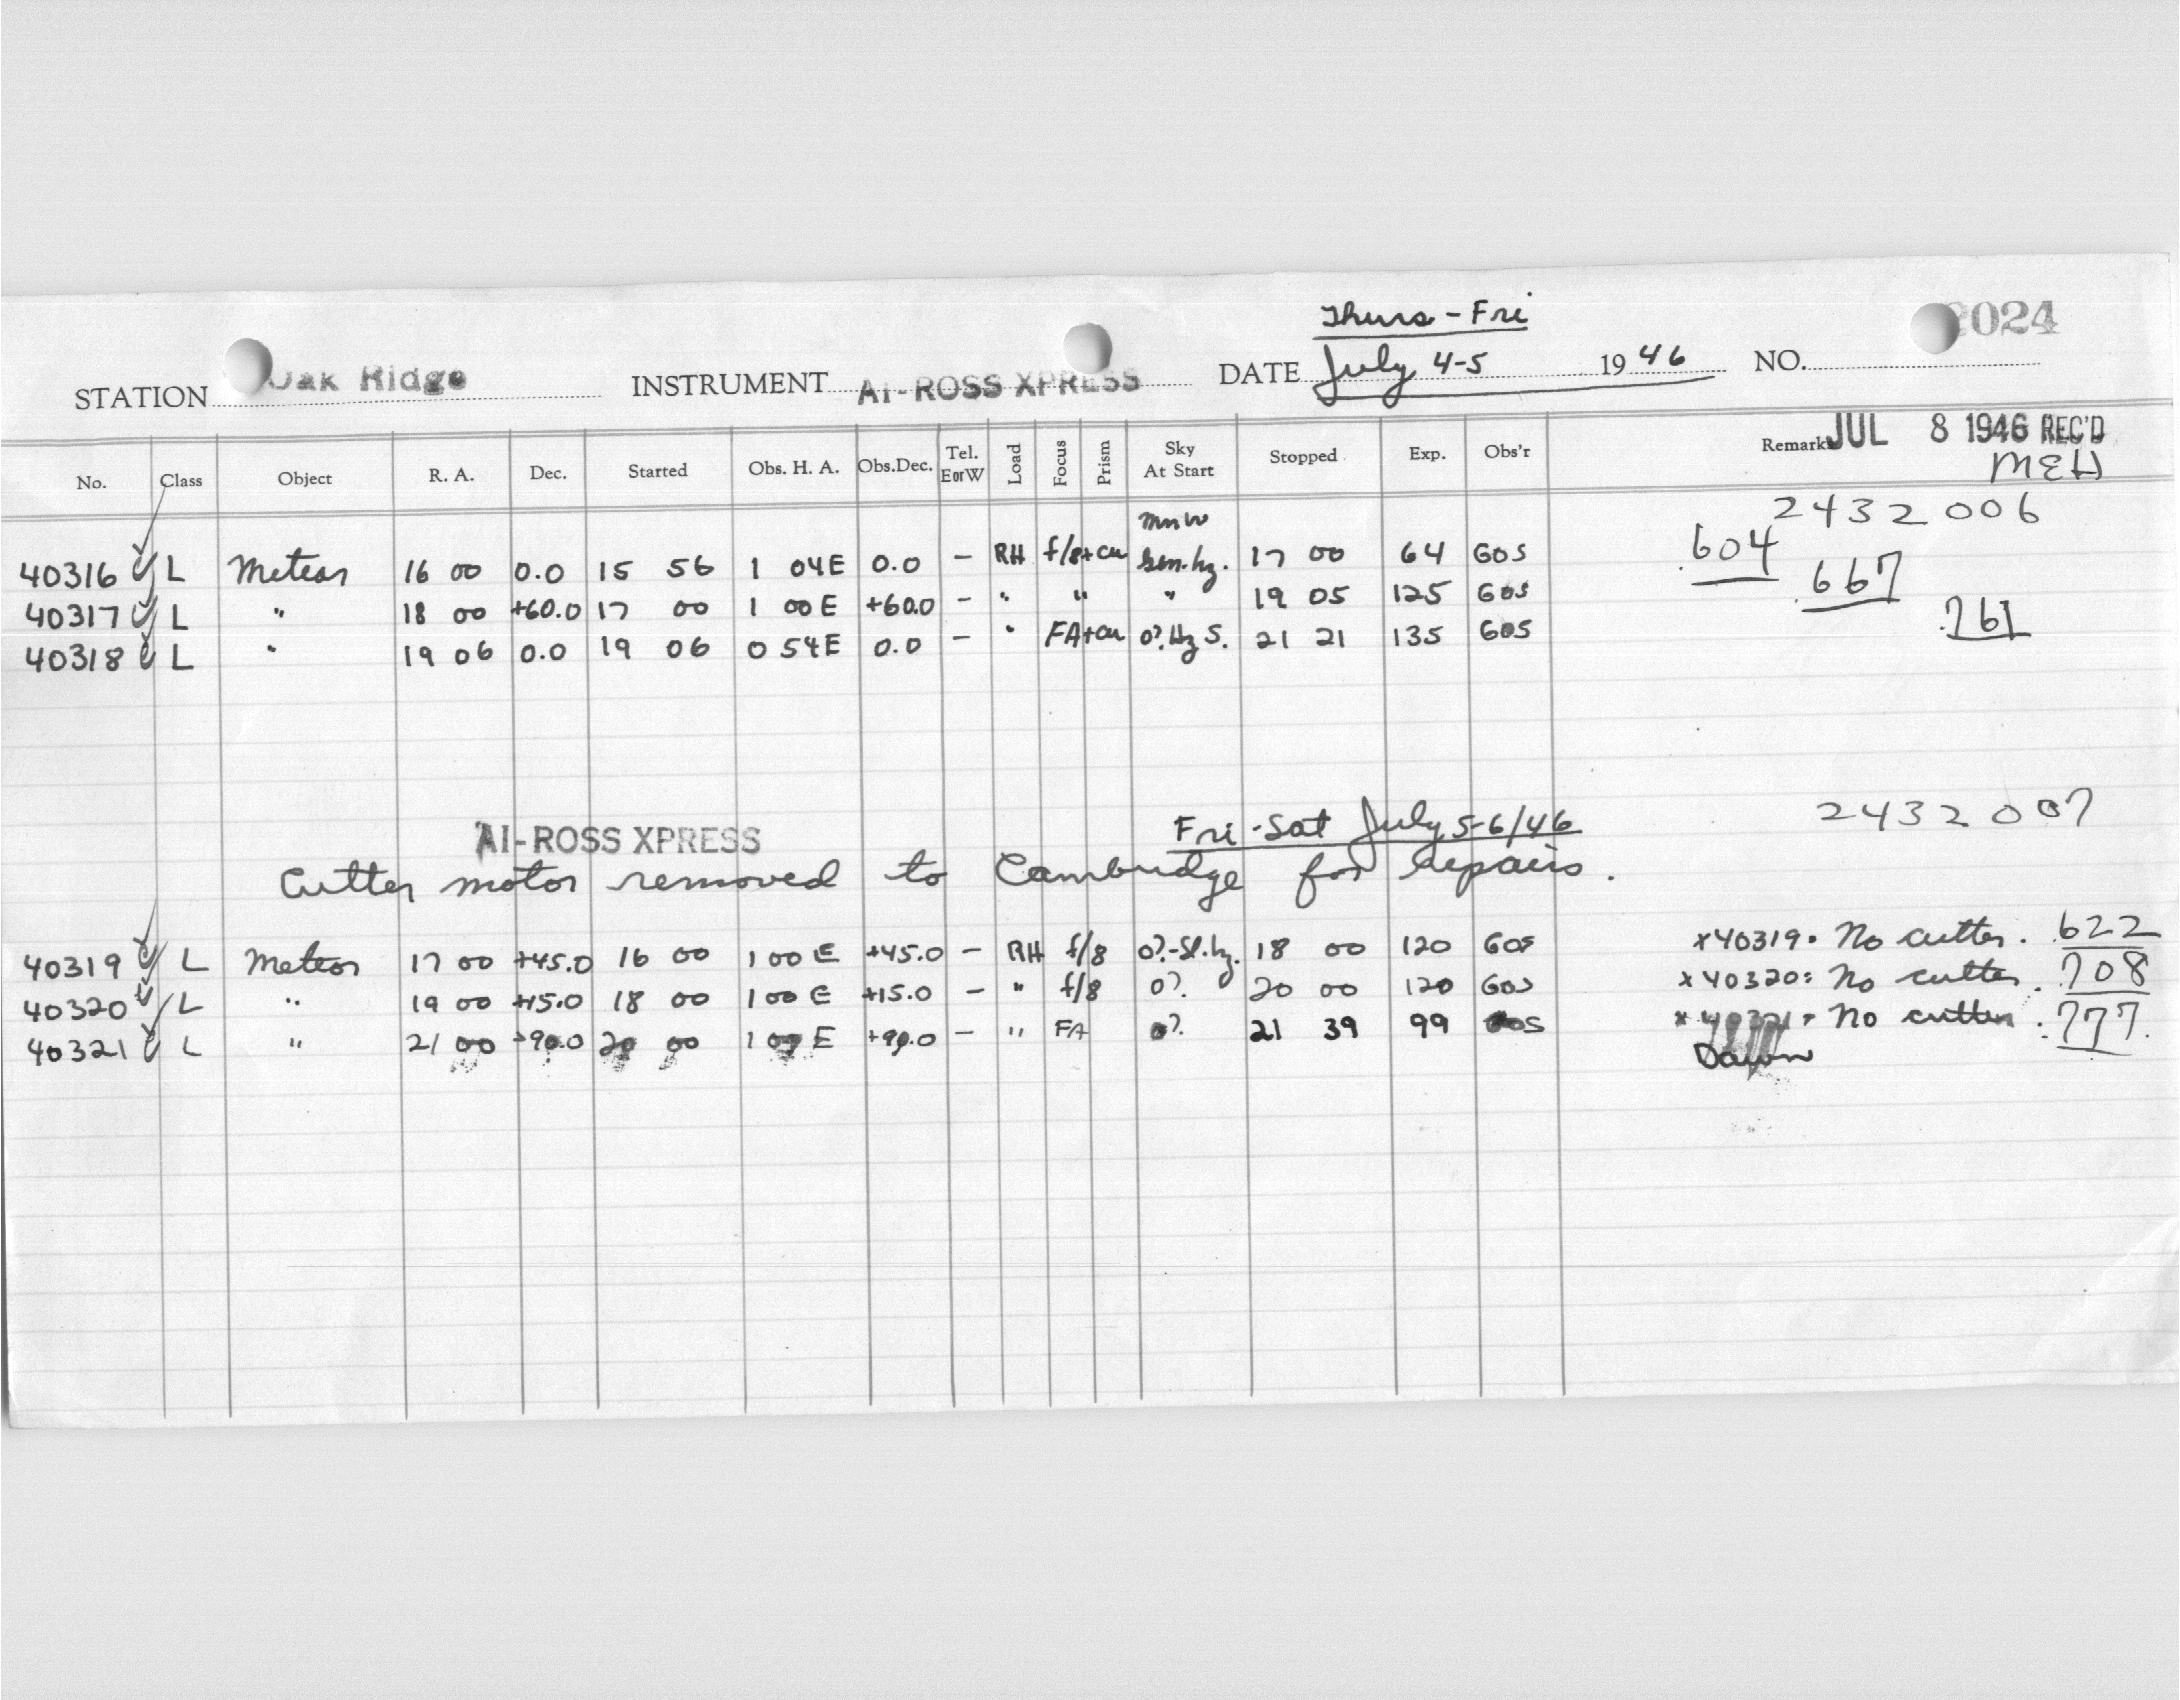 Thurs - Fri
STATION Oak Ridge INSTRUMENT AI-ROSS XPRESS DATE July 4-5 1946 NO. 2024
No. Class Object R. A. Dec. Started Obs. H. A. Obs.Dec. Tel. E or W Load Focus Prism Sky At Start Stopped Exp. Obs'r Remarks JUL 8 1946 REC'D
MEH
2432006
Mn W
40316 L Meteor 16 00 0.0 15 56 1 04E 0.0 - RH f/8+cu Gen. hz. 17 00 64 GOS .604
40317 L " 18 00 +60.0 17 00 1 00E +60.0 - " " " 19 05 125 GOS .667
40318 L " 19 06 0.0 19 06 0 54E 0.0 - " FA+cu 0?. Hz S. 21 21 135 GOS .761
AI-ROSS XPRESS Fri - Sat July 5-6/46 2432007
Cutter motor removed to Cambridge for repairs.
40319 L Meteor 17 00 +45.0 16 00 1 00 E +45.0 - RH f/8 0?-Sl. hz. 18 00 120 GOS x40319: No cutter. .622
40320 L " 19 00 +15.0 18 00 1 00 E +15.0 - " f/8 0?. 20 00 120 GOS x40320: No cutter. .708
40321 L " 21 00 +90.0 20 00 1 00 E +90.0 - " FA 0?. 21 39 99 GOS x40321: No cutter .777
Dawn